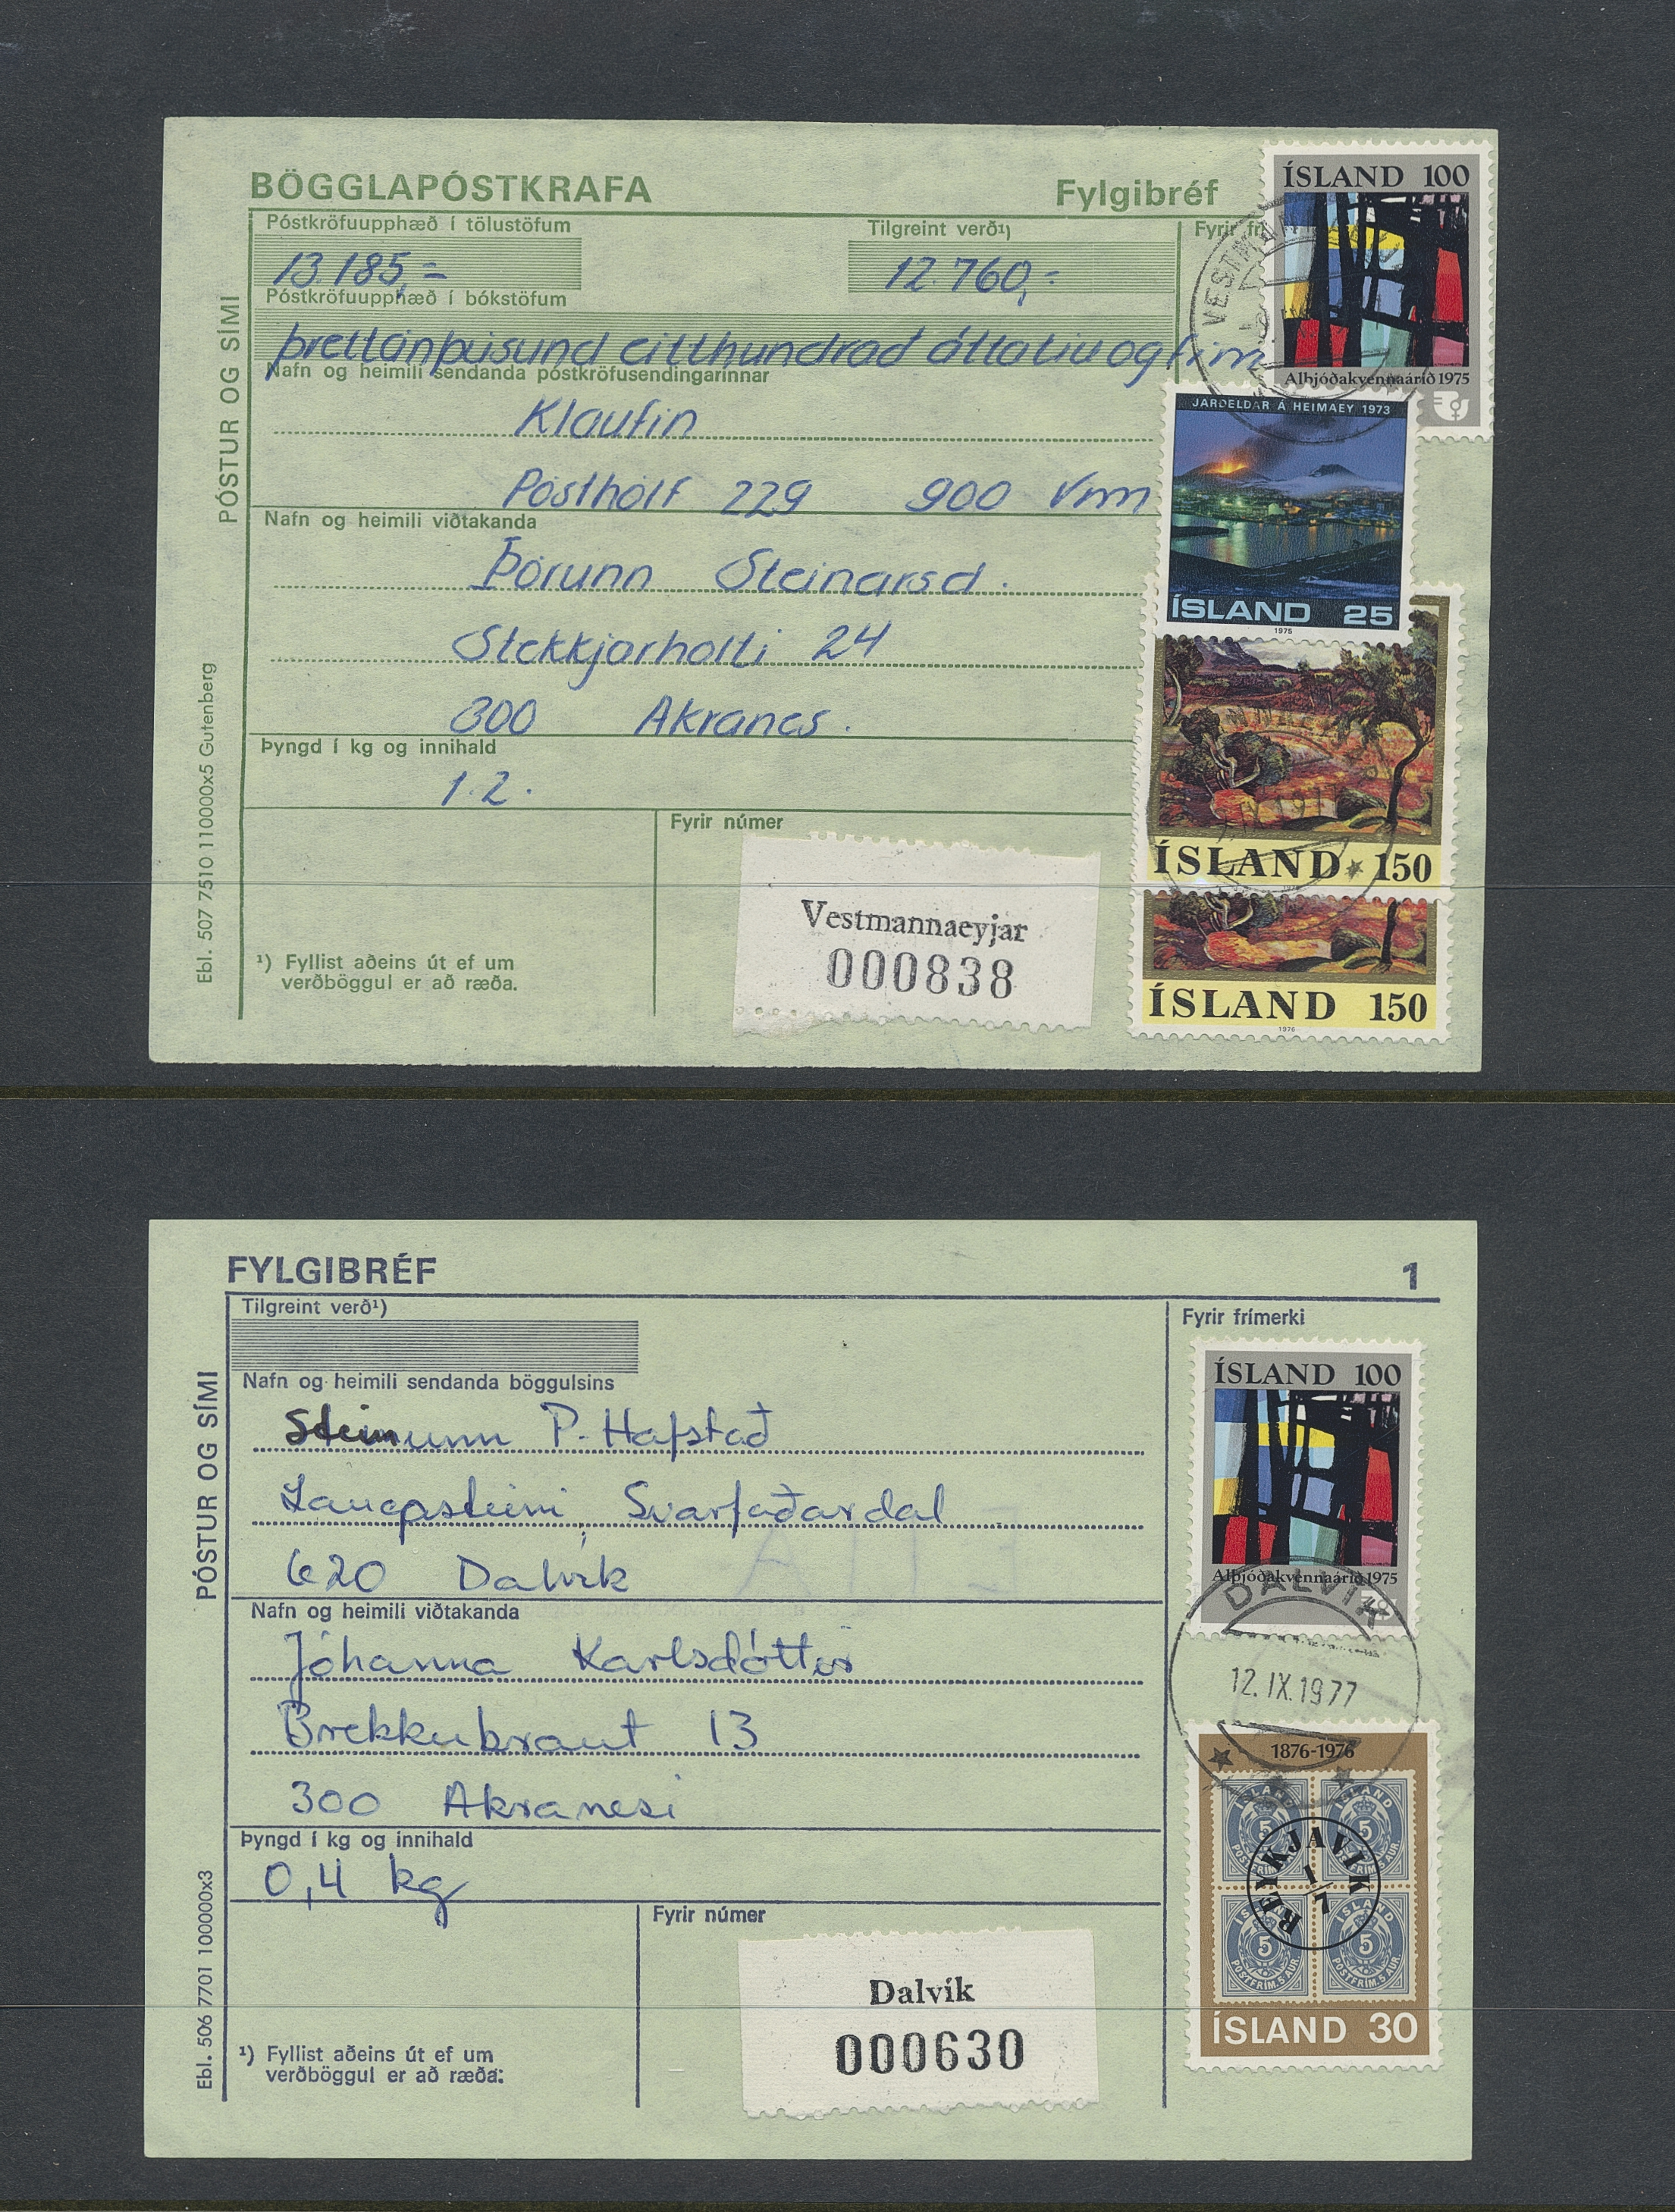 BÖGGLAPÓSTKRAFA
Fylgibréf
Póstkröfuupphæð í tölustöfum
Tilgreint verð¹)
Fyrir
13.185,=
12.760,=
Póstkröfuupphæð í bókstöfum
þrettánþúsund eitthundrað áttatíu og fim
Nafn og heimili sendanda póstkröfusendingarinnar
Klaufin
Pósthólf 229 900 Vm
Nafn og heimili viðtakanda
Þórunn Steinarsd.
Stekkjarholti 24
300 Akranes.
Þyngd í kg og innihald
1.2.
Fyrir númer
Vestmannaeyjar
000838
¹) Fyllist aðeins út ef um
verðböggul er að ræða.
PÓSTUR OG SÍMI
Ebl. 507 7510 110000x5 Gutenberg
ÍSLAND 100
Alþjóðakvennaárið 1975
JARÐELDAR Á HEIMAEY 1973
ÍSLAND 25
1975
ÍSLAND 150
ÍSLAND 150
1976
FYLGIBRÉF
1
Tilgreint verð¹)
Fyrir frímerki
Nafn og heimili sendanda böggulsins
Steinunn P. Hafstað
Svarfaðardal
620 Dalvík
Nafn og heimili viðtakanda
Jóhanna Karlsdóttir
Brekkubraut 13
300 Akranesi
Þyngd í kg og innihald
0,4 kg
Fyrir númer
Dalvík
000630
¹) Fyllist aðeins út ef um
verðböggul er að ræða.
PÓSTUR OG SÍMI
Ebl. 506 7701 100000x3
ÍSLAND 100
Alþjóðakvennaárið 1975
DALVÍK
12.IX.1977
1876-1976
REYKJAVIK
1/7
ÍSLAND 30